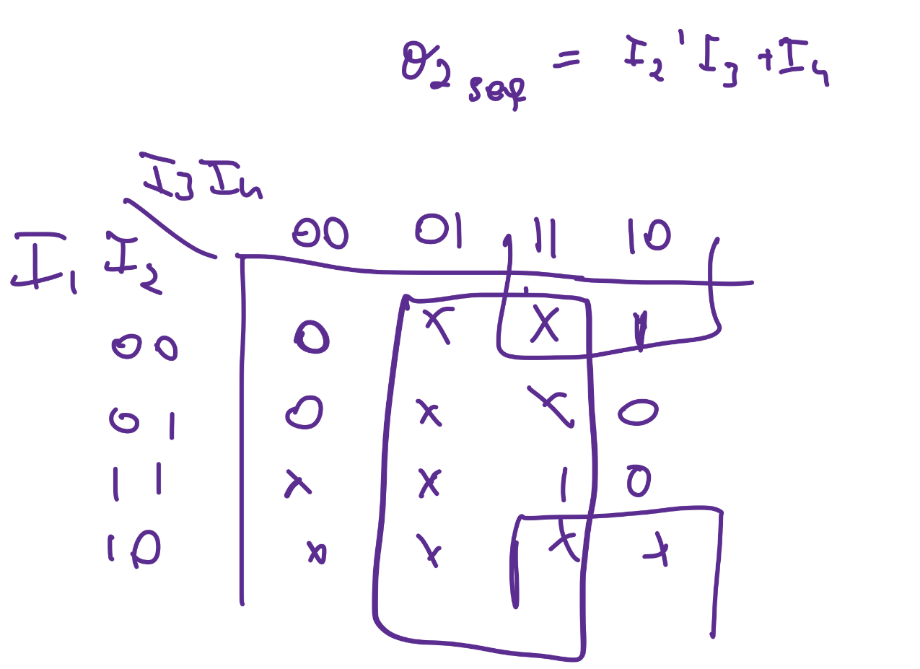 θ₂ sep = I₂' I₃ + I₄
I₃ I₄
I₁ I₂ 00 01 11 10
00 0 x x 1
01 0 x x 0
11 x x 1 0
10 x x x x